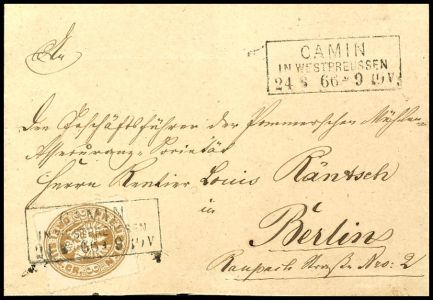 An
CAMIN
IN WESTPREUSSEN
24 8 66 * 9 10 V
Den Geschäftsführer der Pommerschen Mühlen-
Assecuranz-Societät
Herrn Rentier Louis Räntsch
in
Berlin
Straße Nro: 2